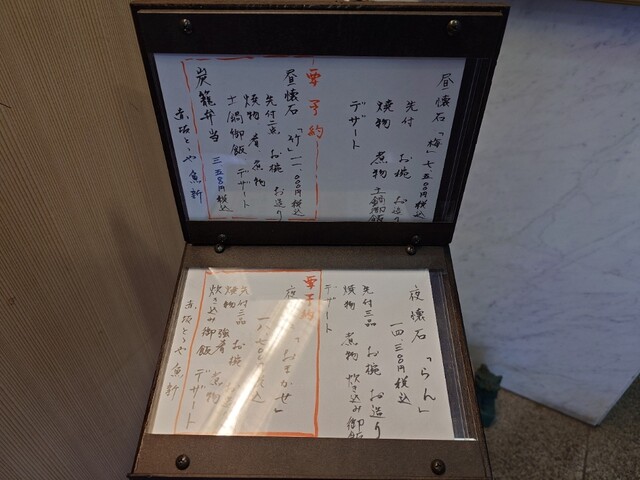 昼懐石「梅」七、五〇〇円税込
先付 お椀 お造り
焼物 煮物 土鍋御飯
デザート
要予約
昼懐石「竹」一一、〇〇〇円税込
先付二点 お椀 お造り
焼物 肴 煮物
土鍋御飯 デザート
炭籠弁当 三、五〇〇円税込
赤坂とゝや魚新
夜懐石「らん」
一四、三〇〇円税込
先付三品 お椀 お造り
焼物 煮物 炊き込み御飯
デザート
要予約
夜 「おまかせ」
一八、七〇〇 税込
先付三品 お椀
焼物 強肴 煮物
炊き込み御飯 デザート
赤坂とゝや魚新